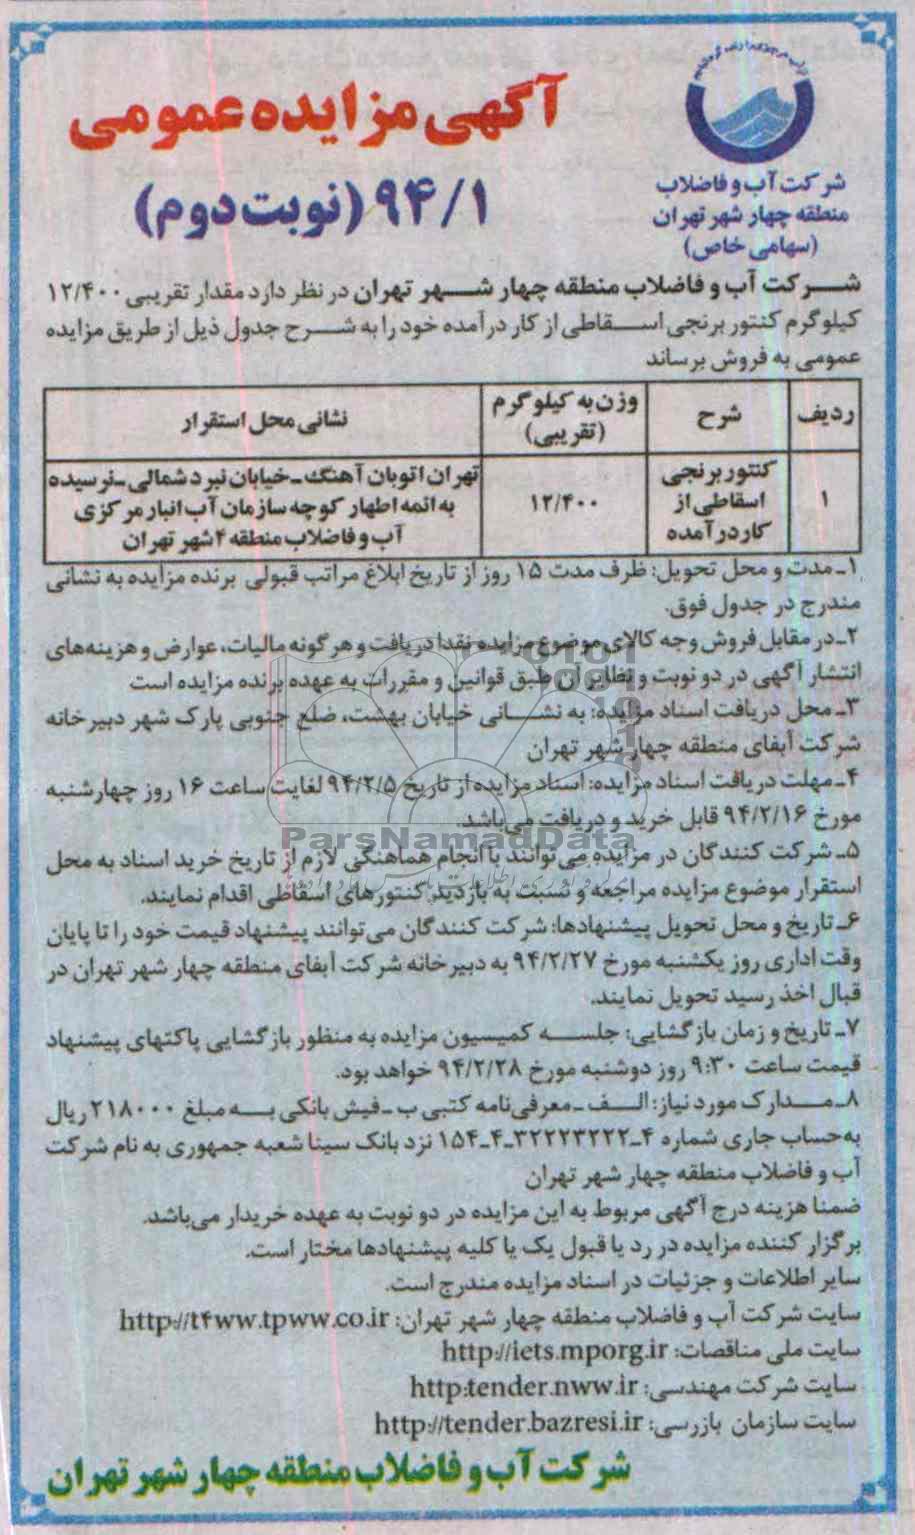 آگهی مزایده عمومی
۹۴/۱ (نوبت دوم)
شرکت آب و فاضلاب
منطقه چهار شهر تهران
(سهامی خاص)
شرکت آب و فاضلاب منطقه چهار شهر تهران در نظر دارد مقدار تقریبی ۱۲/۴۰۰
کیلوگرم کنتور برنجی اسقاطی از کار درآمده خود را به شرح جدول ذیل از طریق مزایده
عمومی به فروش برساند
ردیف شرح وزن به کیلوگرم (تقریبی) نشانی محل استقرار
۱ کنتور برنجی اسقاطی از کار درآمده ۱۲/۴۰۰ تهران اتوبان آهنگ ـ خیابان نبرد شمالی ـ نرسیده به ائمه اطهار کوچه سازمان آب انبار مرکزی آب و فاضلاب منطقه ۴ شهر تهران
۱ـ مدت و محل تحویل: ظرف مدت ۱۵ روز از تاریخ ابلاغ مراتب قبولی برنده مزایده به نشانی
مندرج در جدول فوق.
۲ـ در مقابل فروش وجه کالای موضوع مزایده نقدا دریافت و هر گونه مالیات، عوارض و هزینه‌های
انتشار آگهی در دو نوبت و نظایر آن طبق قوانین و مقررات به عهده برنده مزایده است
۳ـ محل دریافت اسناد مزایده: به نشانی خیابان بهشت، ضلع جنوبی پارک شهر دبیرخانه
شرکت آبفای منطقه چهار شهر تهران
۴ـ مهلت دریافت اسناد مزایده: اسناد مزایده از تاریخ ۹۴/۲/۵ لغایت ساعت ۱۶ روز چهارشنبه
مورخ ۹۴/۲/۱۶ قابل خرید و دریافت می‌باشد.
۵ـ شرکت کنندگان در مزایده می‌توانند با انجام هماهنگی لازم از تاریخ خرید اسناد به محل
استقرار موضوع مزایده مراجعه و نسبت به بازدید کنتورهای اسقاطی اقدام نمایند.
۶ـ تاریخ و محل تحویل پیشنهادها: شرکت کنندگان می‌توانند پیشنهاد قیمت خود را تا پایان
وقت اداری روز یکشنبه مورخ ۹۴/۲/۲۷ به دبیرخانه شرکت آبفای منطقه چهار شهر تهران در
قبال اخذ رسید تحویل نمایند.
۷ـ تاریخ و زمان بازگشایی: جلسه کمیسیون مزایده به منظور بازگشایی پاکتهای پیشنهاد
قیمت ساعت ۹:۳۰ روز دوشنبه مورخ ۹۴/۲/۲۸ خواهد بود.
۸ـ مدارک مورد نیاز: الف ـ معرفی‌نامه کتبی ب ـ فیش بانکی به مبلغ ۲۱۸۰۰۰ ریال
به‌حساب جاری شماره ۴ـ۳۲۲۲۳۲۲۲ـ۴ـ۱۵۴ نزد بانک سینا شعبه جمهوری به نام شرکت
آب و فاضلاب منطقه چهار شهر تهران
ضمنا هزینه درج آگهی مربوط به این مزایده در دو نوبت به عهده خریدار می‌باشد.
برگزار کننده مزایده در رد یا قبول یک یا کلیه پیشنهادها مختار است.
سایر اطلاعات و جزئیات در اسناد مزایده مندرج است.
سایت شرکت آب و فاضلاب منطقه چهار شهر تهران: http://t۴ww.tpww.co.ir
سایت ملی مناقصات: http://iets.mporg.ir
سایت شرکت مهندسی: http:tender.nww.ir
سایت سازمان بازرسی: http://tender.bazresi.ir
شرکت آب و فاضلاب منطقه چهار شهر تهران
ParsNamadData